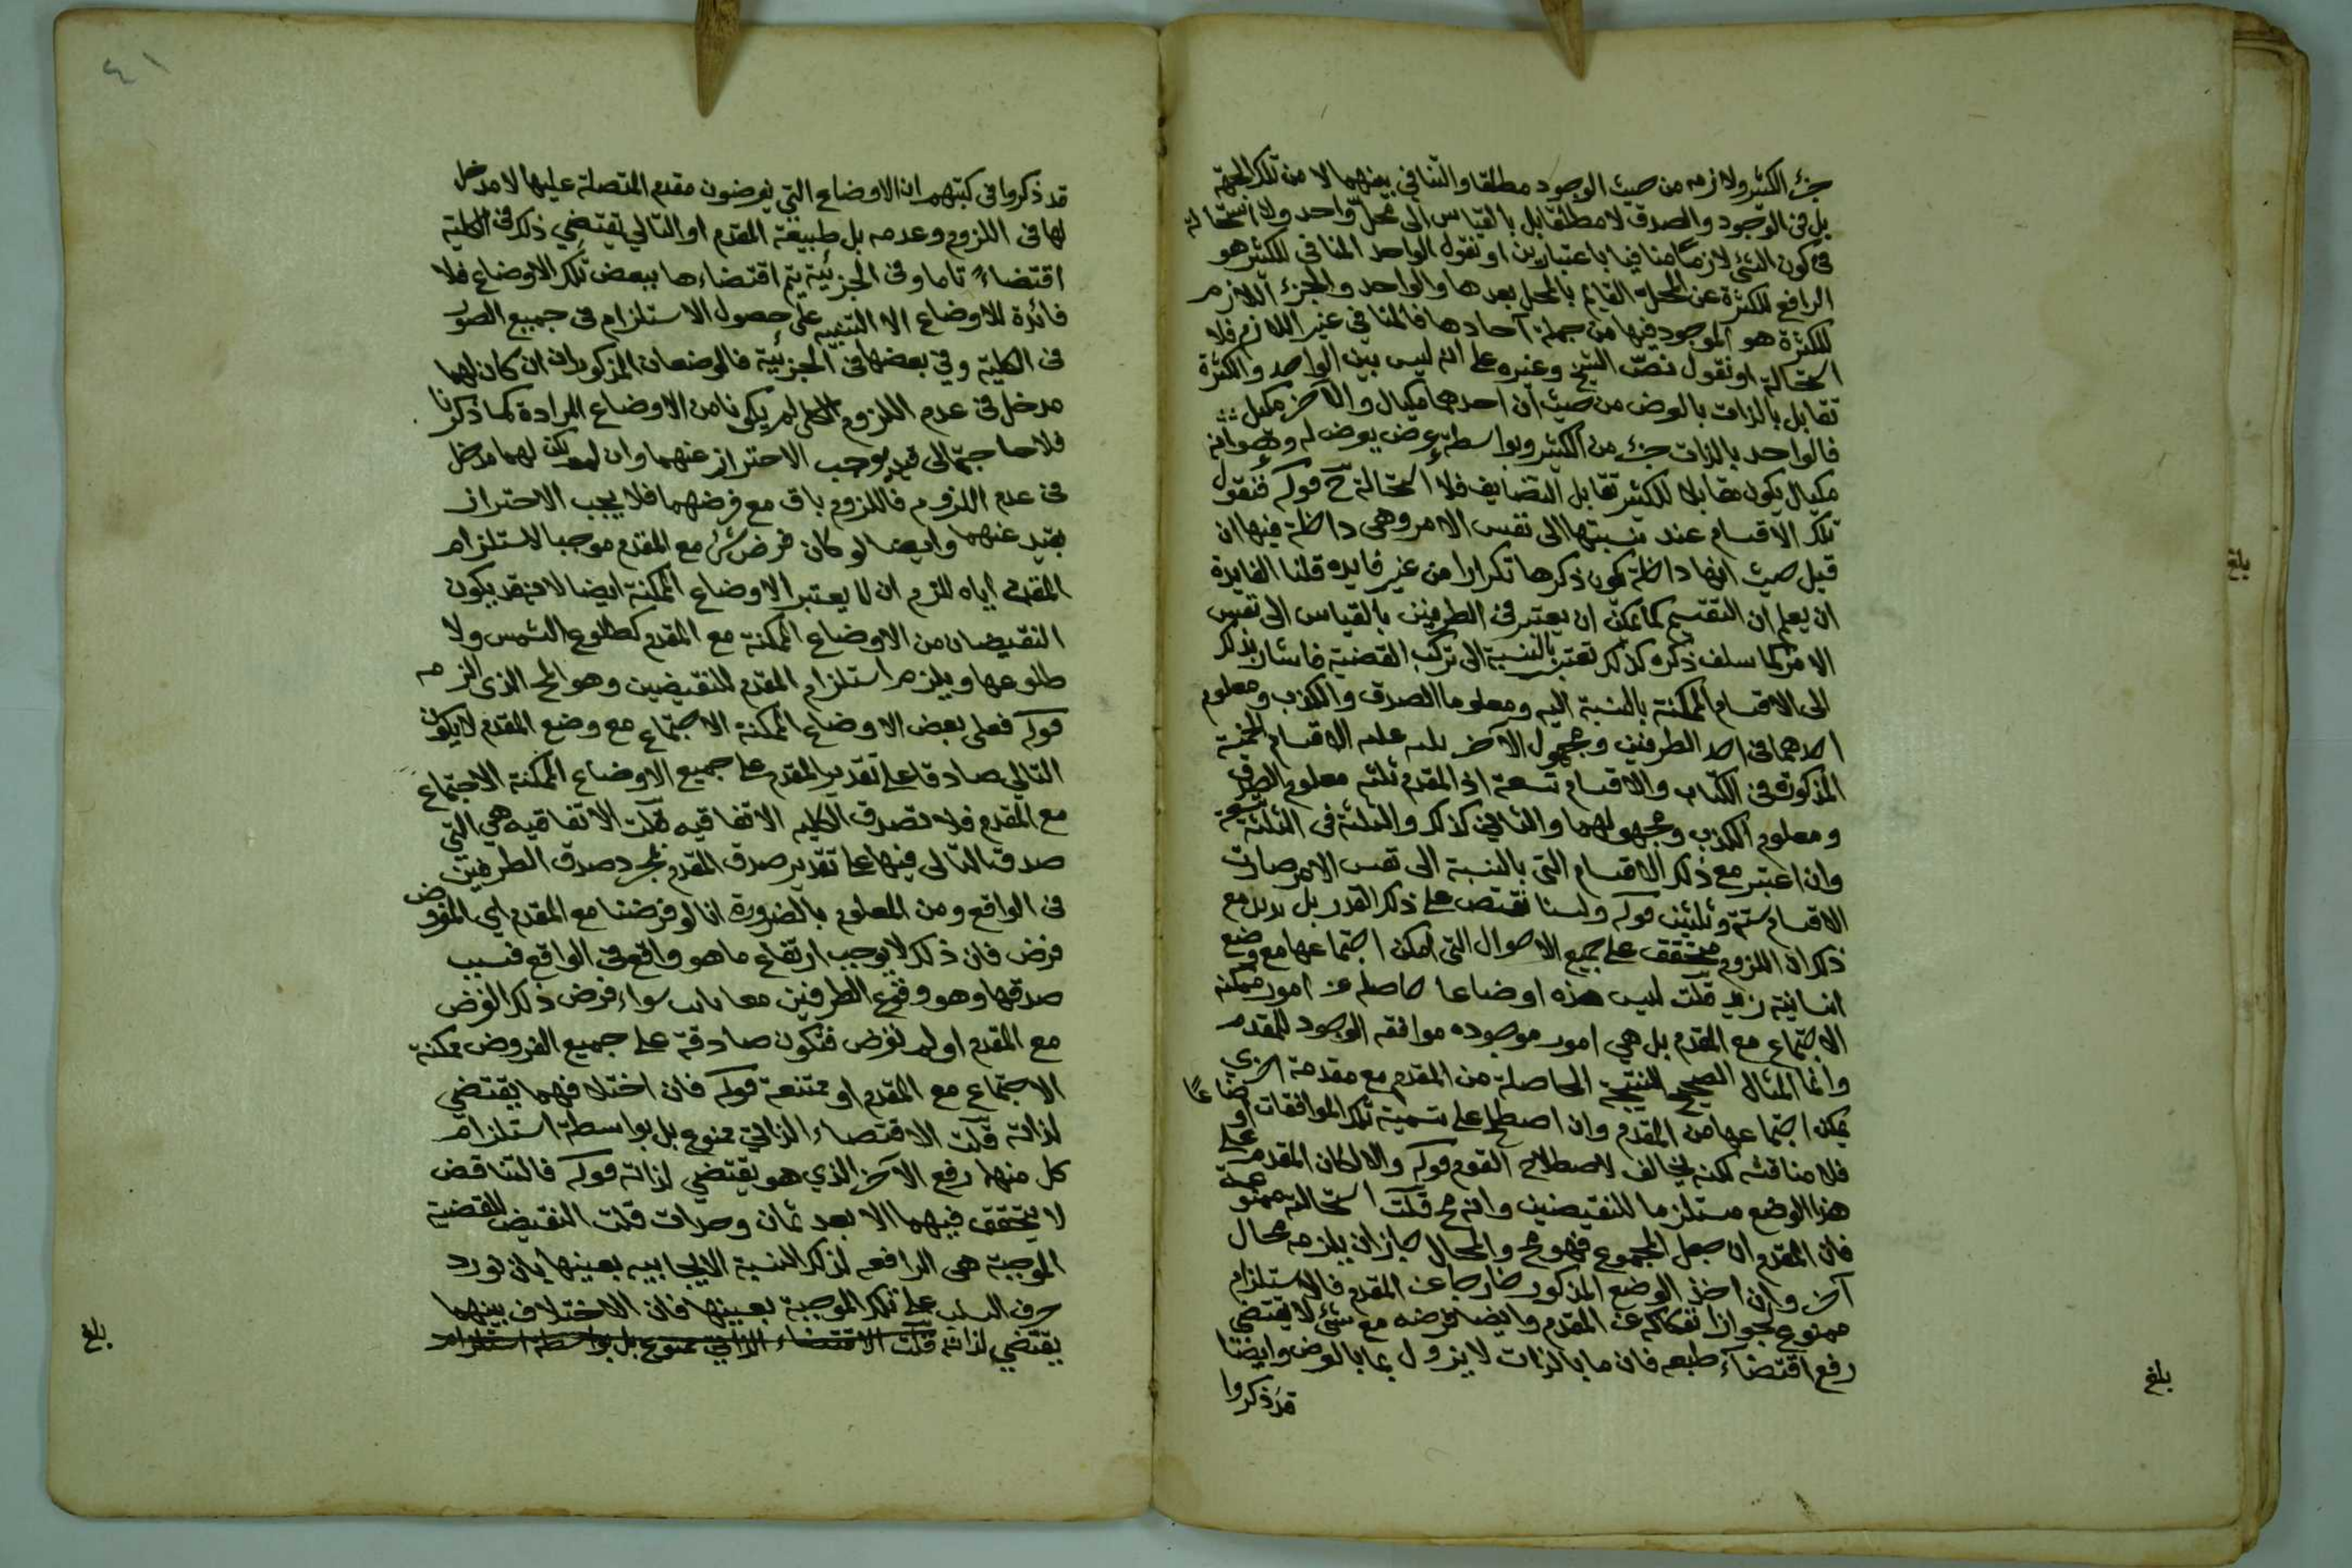 جزء الكثير ولازمه من حيث الوجود مطلقا والتنافي بينهما لا من تلك الجهة
بل في الوجود والصدق لا مطلقا بل بالقياس الى محل واحد ولا استحالة
في كون الشئ لازما منافيا باعتبارين او نقول الواحد المنافي للكثير هو
الرافع للكثرة عن المحل القايم بالمحل بعدها والواحد والجزء اللازم
للكثرة هو الموجود فيها من جملة آحادها فالمنافي غير اللازم فلا
استحالة او نقول نصّ الشيخ وغيره على انه ليس بين الواحد والكثرة
تقابل بالذات بالعرض من حيث ان احدهما مكيال والآخر مكيل
فالواحد بالذات جزء من الكثير وبواسطة عرض يعرض له وهو انه
مكيال يكون مقابلا للكثير تقابل التضايف فلا استحالة ح قوله فنقول
تلك الاقسام عند نسبتها الى نفس الامر وهي داخلة فيها ان
قيل حيث انها داخلة يكون ذكرها تكرارا من غير فايدة قلنا الفايدة
ان يعلم ان التقسيم كما يمكن ان يعتبر في الطرفين بالقياس الى نفس
الامر كما سلف ذكره كذلك تعتبر بالنسبة الى تركب القضية فاشار بذلك
الى الاقسام الممكنة بالنسبة اليه ومعلوما الصدق والكذب ومعلوم
احدهما في احد الطرفين ومجهول الآخر عليه الاقسام الخمسة
المذكورة في الكتاب والاقسام تسعة اذ المقدم ثلثه معلوم الصدق
ومعلوم الكذب ومجهولهما والتالي كذلك والثلثة في الثلثة تسعة
وان اعتبر مع ذلك الاقسام التي بالنسبة الى نفس الامر صارت
الاقسام ستة وثلثين قوله ولسنا نقتصر على ذلك القدر بل نريد مع
ذلك ان اللزوم متحقق على جميع الاحوال التي امكن اجتماعها مع وضع
انسانية زيد قلت ليس هذه اوضاعا حاصلة عن امور ممكنة
الاجتماع مع المقدم بل هي امور موجوده موافقه الوجود للمقدم
وانما المثال الصحيح النتيجة الحاصلة من المقدم مع مقدمة اخرى
يمكن اجتماعها من المقدم وان اصطلح على تسمية تلك الموافقات اوضاعًا
فلا مناقشه لكنه يخالف لاصطلاح القوم قوله والا لكان المقدم على
هذا الوضع مستلزما للنقيضين وانه مح قلت استحالته ممنوعة
فان المقدم ان جعل المجموع فهو مح والمحال جاز ان يلزمه محال
آخر وان اخذ الوضع المذكور خارجا عن المقدم فالاستلزام
ممنوع لجواز انفكاكه عن المقدم وايضا فرضه مع شئ لا يقتضي
رفع اقتضاء طبعه فان ما بالذات لا يزول بما بالعرض وايضا
قد ذكروا
بلغ
بلغ
٤١
قد ذكروا في كتبهم ان الاوضاع التي يفرضون مقدم المتصلة عليها لا مدخل
لها في اللزوم وعدمه بل طبيعة المقدم او التالي تقتضي ذلك في الكلية
اقتضاءً تاما وفي الجزئية يتم اقتضاءها ببعض تلك الاوضاع فلا
فائدة للاوضاع الا التنبيه على حصول الاستلزام في جميع الصور
في الكلية وفي بعضها في الجزئية فالوضعان المذكوران ان كان لهما
مدخل في عدم اللزوم الكلي لم يكونا من الاوضاع المرادة كما ذكرنا
فلا حاجة الى قيد يوجب الاحتراز عنهما وان لم يكن لهما مدخل
في عدم اللزوم فاللزوم باق مع فرضهما فلا يجب الاحتراز
بقيد عنهما وايضا لو كان فرض شئ مع المقدم موجبا لاستلزام
المقدم اياه للزم ان لا يعتبر الاوضاع الممكنة ايضا لانه قد يكون
النقيضان من الاوضاع الممكنة مع المقدم كطلوع الشمس ولا
طلوعها ويلزم استلزام المقدم للنقيضين وهو المح الذي الزمه
قوله فعلى بعض الاوضاع الممكنة الاجتماع مع وضع المقدم لا يكون
التالي صادقا على تقدير المقدم على جميع الاوضاع الممكنة الاجتماع
مع المقدم فلا تصدق الكليه الاتفاقيه قلت الاتفاقيه هي التي
صدق التالى فيها على تقدير صدق المقدم بمجرد صدق الطرفين
في الواقع ومن المعلوم بالضرورة انا لو فرضنا مع المقدم اي المفروض
فرض فان ذلك لا يوجب ارتفاع ما هو واقع في الواقع فسبب
صدقها وهو وقوع الطرفين معا سواء فرض ذلك الفرض
مع المقدم او لم نفرض فتكون صادقة على جميع الفروض ممكنة
الاجتماع مع المقدم او ممتنعة قوله فان اختلافهما يقتضي
لذاته قلت الاقتضاء الذاتي ممنوع بل بواسطة استلزام
كل منها رفع الآخر الذي هو يقتضي لذاته قوله فالتناقض
لا يتحقق فيهما الا بعد ثمان وحدات قلت النقيض للقضية
الموجبة هي الرافعه لذلك النسبة الايجابيه بعينها بان نورد
حرف السلب على تلك الموجبة بعينها فان الاختلاف بينهما
يقتضي لذاته قلت الاقتضاء الذاتي ممنوع بل بواسطة استلزام
بلغ